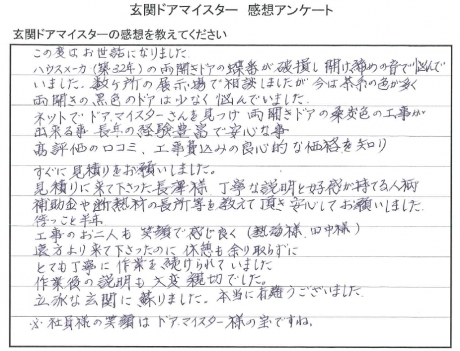 玄関ドアマイスター 感想アンケート
玄関ドアマイスターの感想を教えてください
この度はお世話になりました。
ハウスメーカ(築32年)の両開きドアの蝶番が破損し開け締めの音で悩んで
いました。数ヶ所の展示場で相談しましたが今は茶系の色が多く
両開きの黒色のドアは少なく悩んでいました。
ネットでドアマイスターさんを見つけ両開きドアの
工事が
出来る事 長年の経験豊富で安心な事
高評価の口コミ、工事費込みの良心的な価格を知り
すぐに見積りをお願いしました。
見積りに来て下さった長澤様 丁寧な説明と好感が持てる人柄
補助金や断熱材の長所等を教えて頂き安心してお願いしました。
待つこと半年
工事のお二人も笑顔で感じ良く(熱海様、田中様)
遠方より来て下さったのに休憩も余り取らずに
とても丁寧に作業を続けられていました
作業後の説明も大変親切でした。
立派な玄関に蘇りました。本当に有難うございました。
※社員様の笑顔はドアマイスター様の宝ですね。